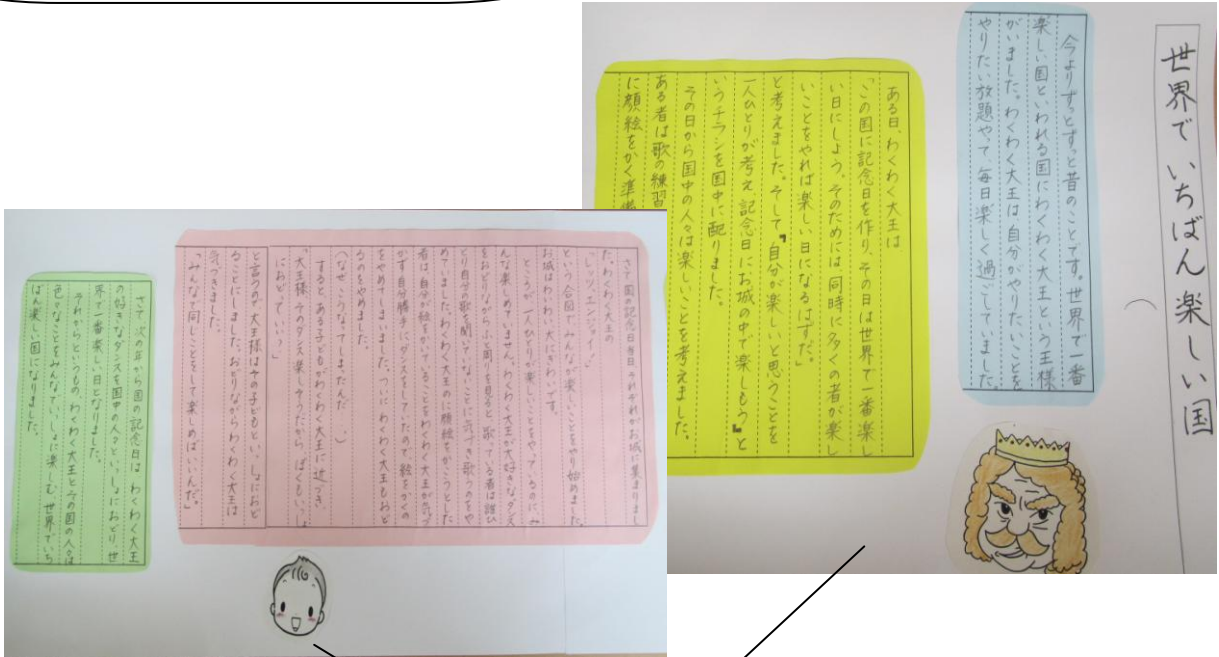 世界でいちばん楽しい国
今よりずっとずっと昔のことです。世界で一番
楽しい国といわれる国にわくわく大王という王様
がいました。わくわく大王は自分がやりたいことを
やりたい放題やって毎日楽しく過ごしていました。
ある日、わくわく大王は
「この国に記念日を作り、その日は世界で一番楽し
い日にしよう。そのためには同時に多くの者が楽し
いことをやれば楽しい日になるはずだ。」
と考えました。そして『自分が楽しいと思うことを
一人ひとりが考え、記念日にお城の中で楽しもう』と
いうチラシを国中に配りました。
その日から国中の人々は楽しいことを考えました。
ある者は歌の練習
に顔絵をかく準備
さて国の記念日当日それぞれがお城に集まりまし
た。わくわく大王の
「レッツ、エンジョイ！」
という合図でみんなが楽しいことをやり始めました。
お城はわいわい大にぎわいです。
ところが、一人ひとりが楽しいことをやっているのにみ
んな楽しめていません。わくわく大王が大好きなダンス
をおどりながら小周りを見ると、歌っている者は誰ひ
とり自分の歌を聞いていないことに気づき歌うのをや
めていました。わくわく大王の顔絵をかこうとした
者は、自分が絵をかいていることをわくわく大王が気づ
かず自分勝手にダンスをしていたので、絵をかくの
をやめてしまいました。ついにわくわく大王もおど
るのをやめました。
（なぜこうなってしまったんだ…）
すると、ある子どもがわくわく大王に近づき
「大王様、そのダンス楽しそうだから、ぼくもいっしょ
におどっていい？」
と言うので大王様はその子どもといっしょにおど
ることにしました。おどりながらわくわく大王は
気づきました。
「みんなで同じことをして楽しめばいいんだ。」
さて、次の年から国の記念日は、わくわく大王
の好きなダンスを国中の人々といっしょにおどり、世
界で一番楽しい日となりました。
それからというもの、わくわく大王とその国の人々は
色々なことをみんなでいっしょに楽しむ、世界でいち
ばん楽しい国になりました。